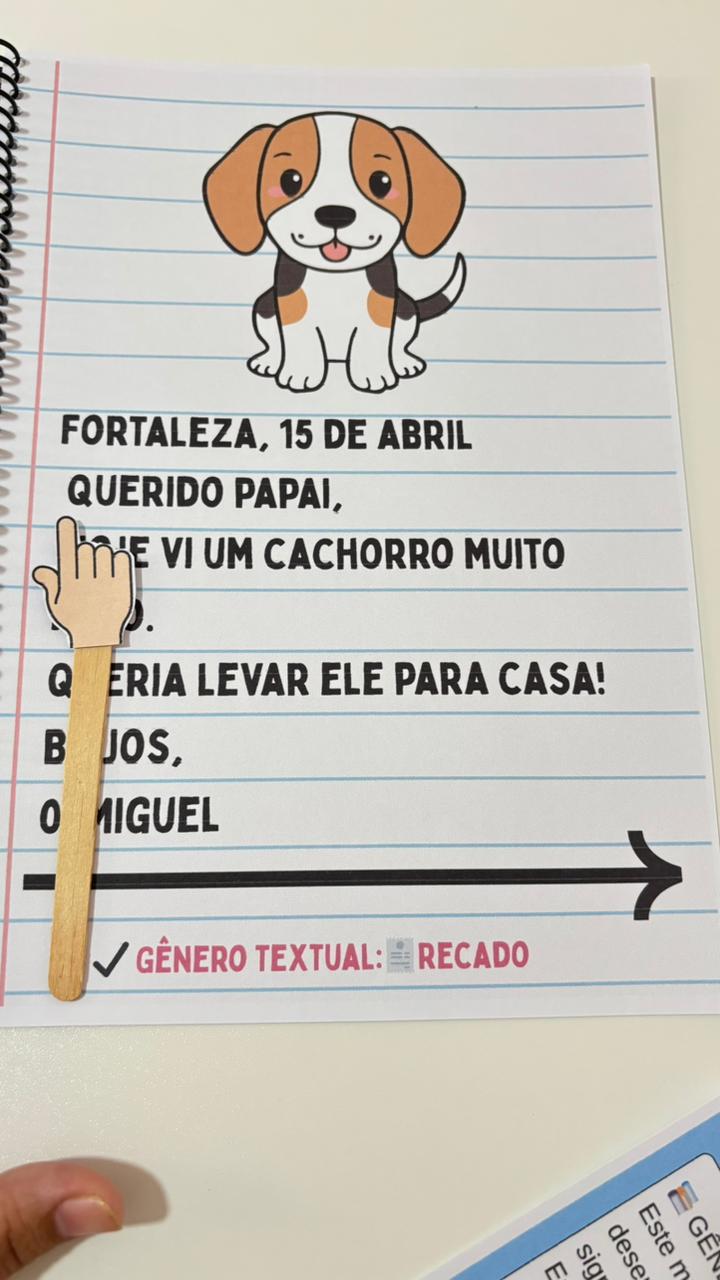 FORTALEZA, 15 DE ABRIL
QUERIDO PAPAI,
VI UM CACHORRO MUITO
QUERIA LEVAR ELE PARA CASA!
BEIJOS,
MIGUEL
GÊNERO TEXTUAL: RECADO
Este